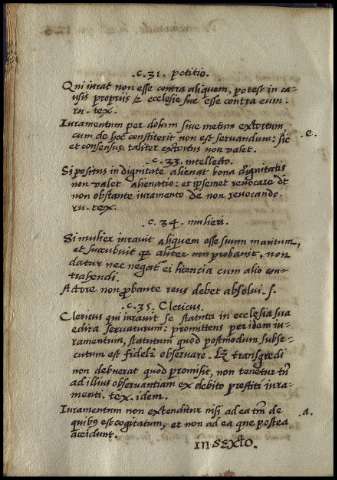 .c.31. petitio.
Qui iurat non esse contra aliquem, potest in ca-
usis propriis & ecclesie sue esse contra eum.
ru. tex.
Iuramentum per dolum siue metum extortum
cum de hoc constiterit non est servandum: sic
et consensus taliter extortus non valet.
.e.
.c.33. intellecto.
Si positus in dignitate alienat bona dignitatis
non valet alienatio: et ipsemet revocare dt
non obstante iuramento de non revocando.
ru. tex.
.c.34. mulieri
Si mulier iurauit aliquem esse suum maritum,
et succubuit qr aliter non probauit, non
datur nec negat ei licencia cum alio con-
trahendi.
Actore non probante reus debet absolui. f.
.c.35. Clericus
Clericus qui iurauit se statuta in ecclesia sua
edita servaturum: promittens per idem iu-
ramentum, statutum quod postmodum subse-
cutum est fideli observare. transgredi
non debuerat quod promisit, non tenetur tn
ad illius observantiam ex debito prestiti iura-
menti. tex. idem.
Iuramentum non extenditur nisi ad ea tm de
quibus est cogitatum, et non ad ea que postea
accidunt.
.a.
IN SEXTO.